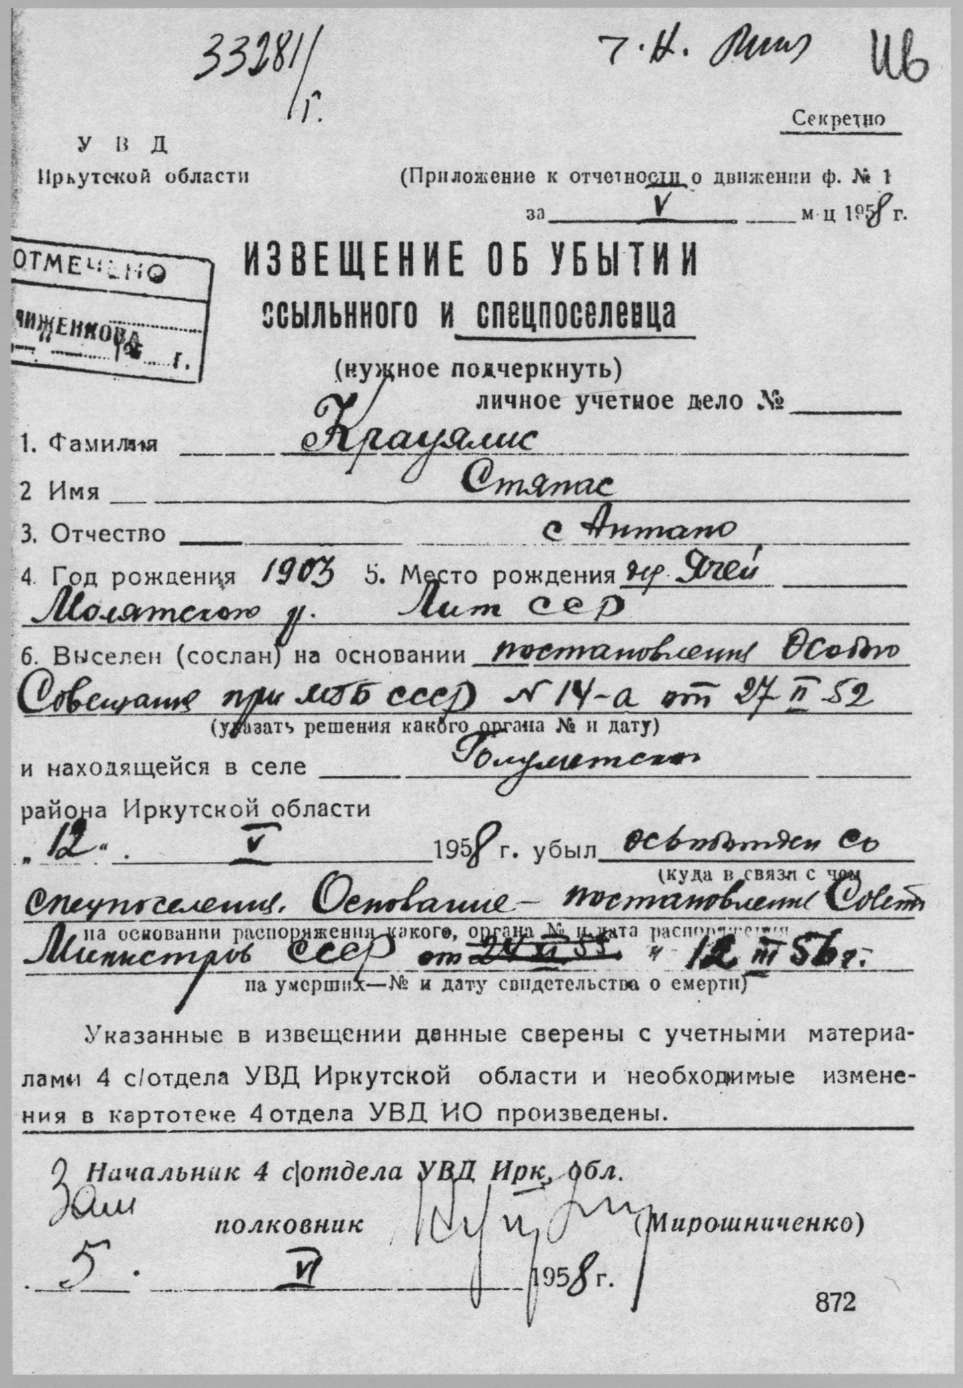 33281/г.
Ив
Секретно
У В Д
Иркутской области
(Приложение к отчетности о движении ф. № 1
за V м-ц 1958 г.
ОТМЕЧЕНО
ИЖЕНКОВА
195 г.
ИЗВЕЩЕНИЕ ОБ УБЫТИИ
ссыльнного и спецпоселенца
(нужное подчеркнуть)
личное учетное дело №
1. Фамилия Крауялис
2 Имя Стяпас
3. Отчество с Антано
4. Год рождения 1903 5. Место рождения дер. Ячей
Молятского р. Лит ССР
6. Выселен (сослан) на основании постановления Особого
Совещания при МГБ СССР N 14-а от 27 II 52
(указать решения какого органа № и дату)
и находящейся в селе Голуметског
района Иркутской области
„12“ V 1958 г. убыл освобожден со
(куда в связи с чем
спецпоселения. Основание – постановление Совета
на основании распоряжения какого, органа № и дата распоряжения
Министров СССР от 24 XI 55. " 12 III 56 г.
на умерших—№ и дату свидетельства о смерти)
Указанные в извещении данные сверены с учетными материа-
лами 4 с/отдела УВД Иркутской области и необходимые измене-
ния в картотеке 4 отдела УВД ИО произведены.
Зам Начальник 4 с/отдела УВД Ирк, обл.
полковник (Мирошниченко)
5 VI 1958 г.
872